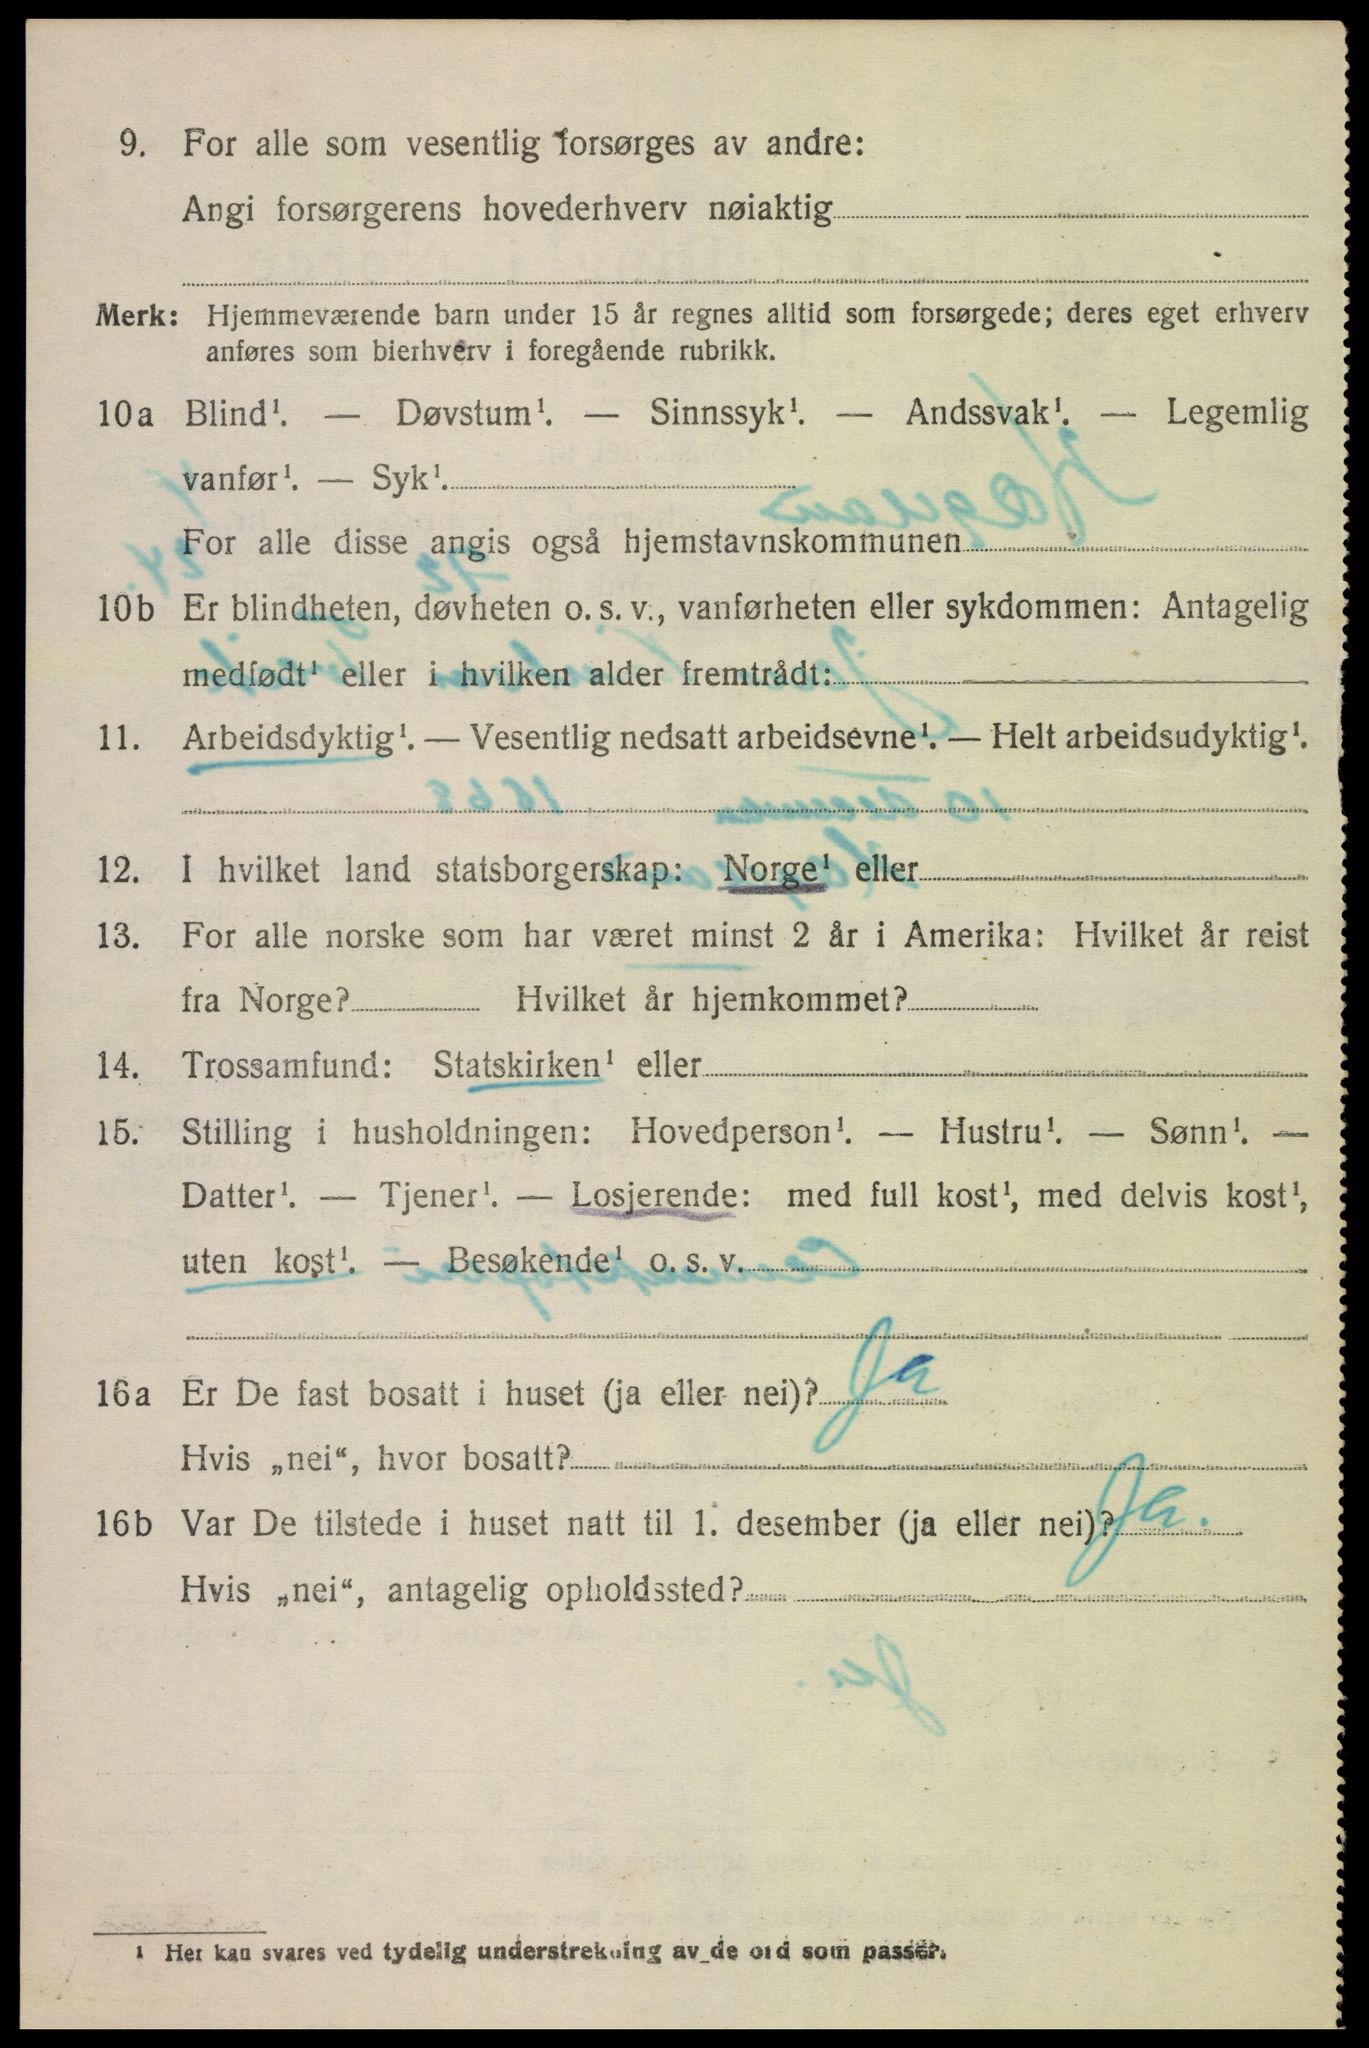 9. For alle som vesentlig forsørges av andre:
Angi forsørgerens hovederhverv nøiaktig
Merk: Hjemmeværende barn under 15 år regnes alltid som forsørgede; deres eget erhverv
anføres som bierhverv i foregående rubrikk.
10a Blind¹. — Døvstum¹. — Sinnssyk¹. — Andssvak¹. — Legemlig
vanfør¹. — Syk¹.
For alle disse angis også hjemstavnskommunen
10b Er blindheten, døvheten o. s. v., vanførheten eller sykdommen: Antagelig
medfødt¹ eller i hvilken alder fremtrådt:
11. Arbeidsdyktig¹. — Vesentlig nedsatt arbeidsevne¹. — Helt arbeidsudyktig¹.
12. I hvilket land statsborgerskap: Norge¹ eller
13. For alle norske som har været minst 2 år i Amerika: Hvilket år reist
fra Norge? Hvilket år hjemkommet?
14. Trossamfund: Statskirken¹ eller
15. Stilling i husholdningen: Hovedperson¹. — Hustru¹. — Sønn¹. —
Datter¹. — Tjener¹. — Losjerende: med full kost¹, med delvis kost¹,
uten kost¹. — Besøkende¹ o. s. v.
16a Er De fast bosatt i huset (ja eller nei)? Ja
Hvis „nei“, hvor bosatt?
16b Var De tilstede i huset natt til 1. desember (ja eller nei)? Ja.
Hvis „nei“, antagelig opholdssted?
1 Her kan svares ved tydelig understrekning av de ord som passer.